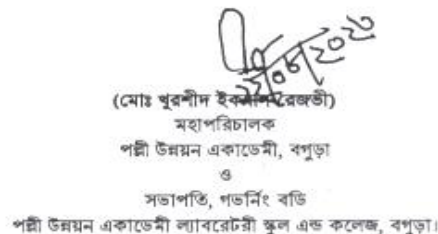 ২২/০৮/২০২৩
(মোঃ খুরশীদ ইকবাল রেজভী)
মহাপরিচালক
পল্লী উন্নয়ন একাডেমী, বগুড়া
ও
সভাপতি, গভর্নিং বডি
পল্লী উন্নয়ন একাডেমী ল্যাবরেটরী স্কুল এন্ড কলেজ, বগুড়া।